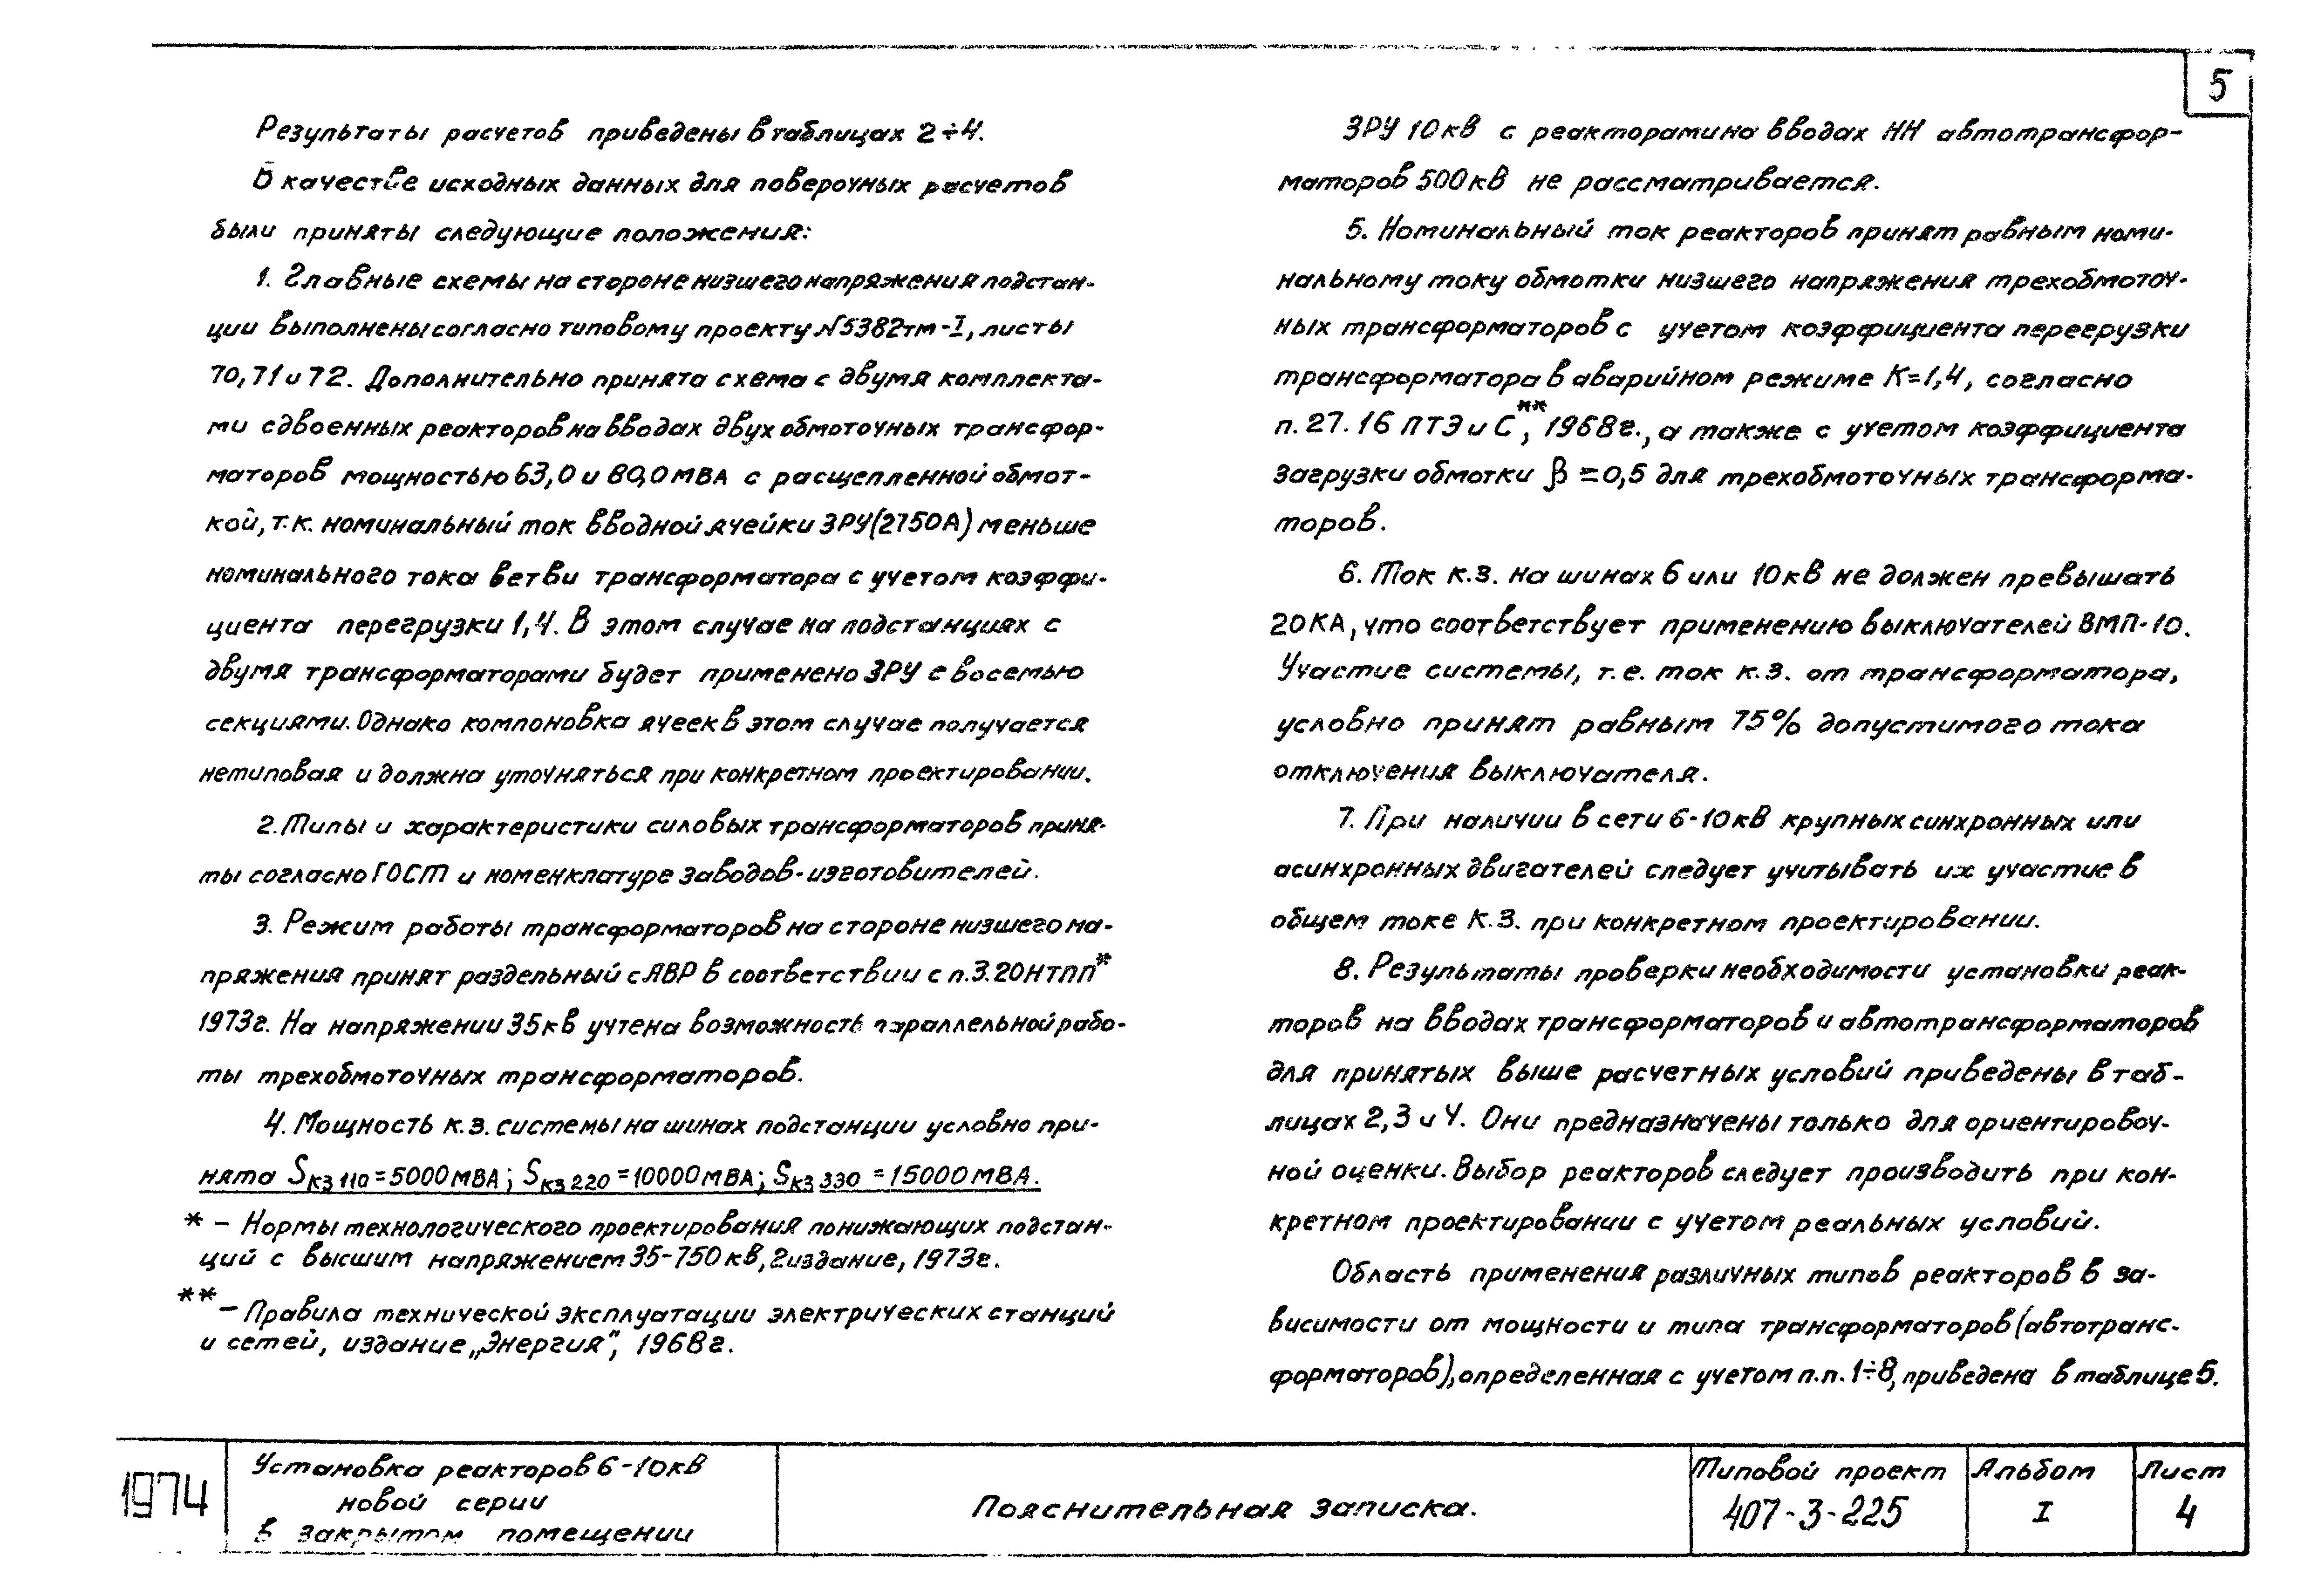 5
Результаты расчетов приведены в таблицах 2÷4.
В качестве исходных данных для поверочных расчетов
были приняты следующие положения:
1. Главные схемы на стороне низшего напряжения подстан-
ции выполнены согласно типовому проекту №5382тм-I, листы
70, 71 и 72. Дополнительно принята схема с двумя комплекта-
ми сдвоенных реакторов на вводах двухобмоточных трансфор-
маторов мощностью 63,0 и 80,0 МВА с расщепленной обмот-
кой, т.к. номинальный ток вводной ячейки ЗРУ (2750А) меньше
номинального тока ветви трансформатора с учетом коэффи-
циента перегрузки 1,4. В этом случае на подстанциях с
двумя трансформаторами будет применено ЗРУ с восемью
секциями. Однако компоновка ячеек в этом случае получается
нетиповая и должна уточняться при конкретном проектировании.
2. Типы и характеристики силовых трансформаторов приня-
ты согласно ГОСТ и номенклатуре заводов-изготовителей.
3. Режим работы трансформаторов на стороне низшего на-
пряжения принят раздельный с АВР в соответствии с п.3.20 НТПП*
1973г. На напряжении 35кВ учтена возможность параллельной рабо-
ты трехобмоточных трансформаторов.
4. Мощность к.з. системы на шинах подстанции условно при-
нята Sкз 110 = 5000 МВА; Sкз 220 = 10000 МВА; Sкз 330 = 15000 МВА.
* – Нормы технологического проектирования понижающих подстан-
ций с высшим напряжением 35-750 кВ, 2 издание, 1973г.
** – Правила технической эксплуатации электрических станций
и сетей, издание „Энергия", 1968г.
ЗРУ 10 кВ с реакторами на вводах НН автотрансфор-
маторов 500 кВ не рассматривается.
5. Номинальный ток реакторов принят равным номи-
нальному току обмотки низшего напряжения трехобмоточ-
ных трансформаторов с учетом коэффициента перегрузки
трансформатора в аварийном режиме К=1,4, согласно
п. 27.16 ПТЭ и С**, 1968г., а также с учетом коэффициента
загрузки обмотки β = 0,5 для трехобмоточных трансформа-
торов.
6. Ток к.з. на шинах 6 или 10 кВ не должен превышать
20 КА, что соответствует применению выключателей ВМП-10.
Участие системы, т.е. ток к.з. от трансформатора,
условно принят равным 75% допустимого тока
отключения выключателя.
7. При наличии в сети 6-10 кВ крупных синхронных или
асинхронных двигателей следует учитывать их участие в
общем токе К.З. при конкретном проектировании.
8. Результаты проверки необходимости установки реак-
торов на вводах трансформаторов и автотрансформаторов
для принятых выше расчетных условий приведены в таб-
лицах 2, 3 и 4. Они предназначены только для ориентировоч-
ной оценки. Выбор реакторов следует производить при кон-
кретном проектировании с учетом реальных условий.
Область применения различных типов реакторов в за-
висимости от мощности и типа трансформаторов (автотранс-
форматоров), определенная с учетом п.п. 1÷8, приведена в таблице 5.
1974
Установка реакторов 6-10кВ
новой серии
в закрытом помещении
Пояснительная записка.
Типовой проект
407-3-225
Альбом
I
Лист
4